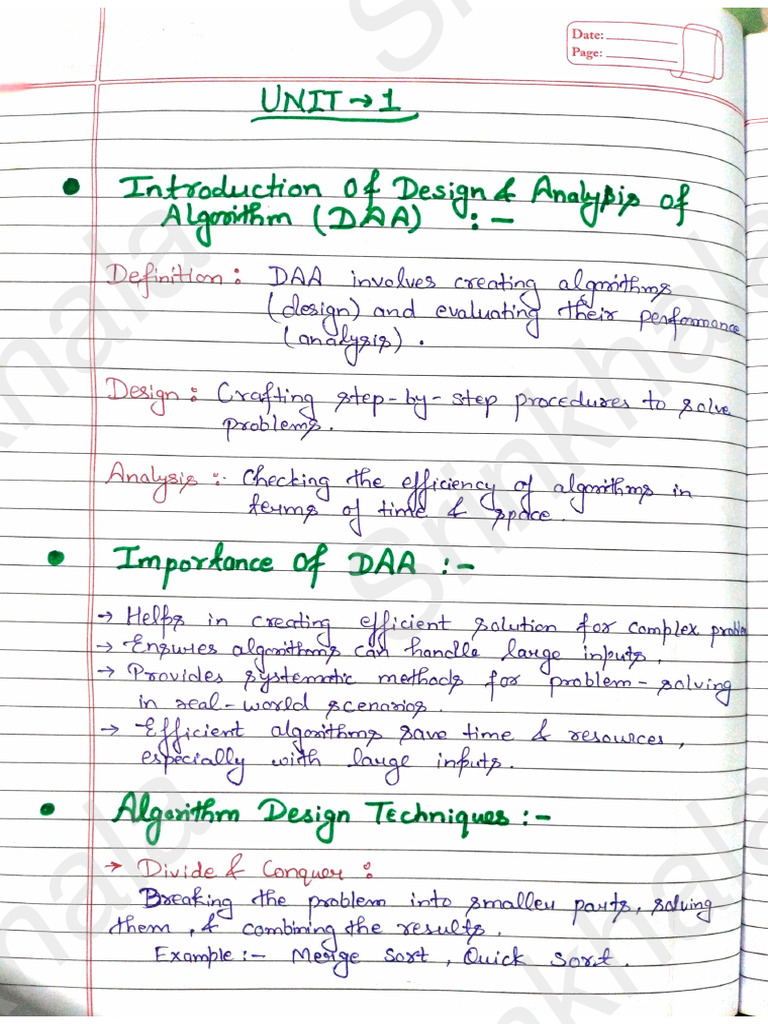 Date:
Page:
UNIT → 1
• Introduction Of Design & Analysis of
Algorithm (DAA) :-
Definition : DAA involves creating algorithms
(design) and evaluating their performance
(analysis).
Design : Crafting step-by-step procedures to solve
problems.
Analysis :- Checking the efficiency of algorithms in
terms of time & space.
• Importance Of DAA :-
→ Helps in creating efficient solution for complex problem
→ Ensures algorithms can handle large inputs.
→ Provides systematic methods for problem-solving
in real-world scenarios.
→ Efficient algorithms save time & resources,
especially with large inputs.
• Algorithm Design Techniques :-
→ Divide & Conquer :
Breaking the problem into smaller parts, solving
them, & combining the results.
Example :- Merge Sort, Quick Sort.
Srinkhala